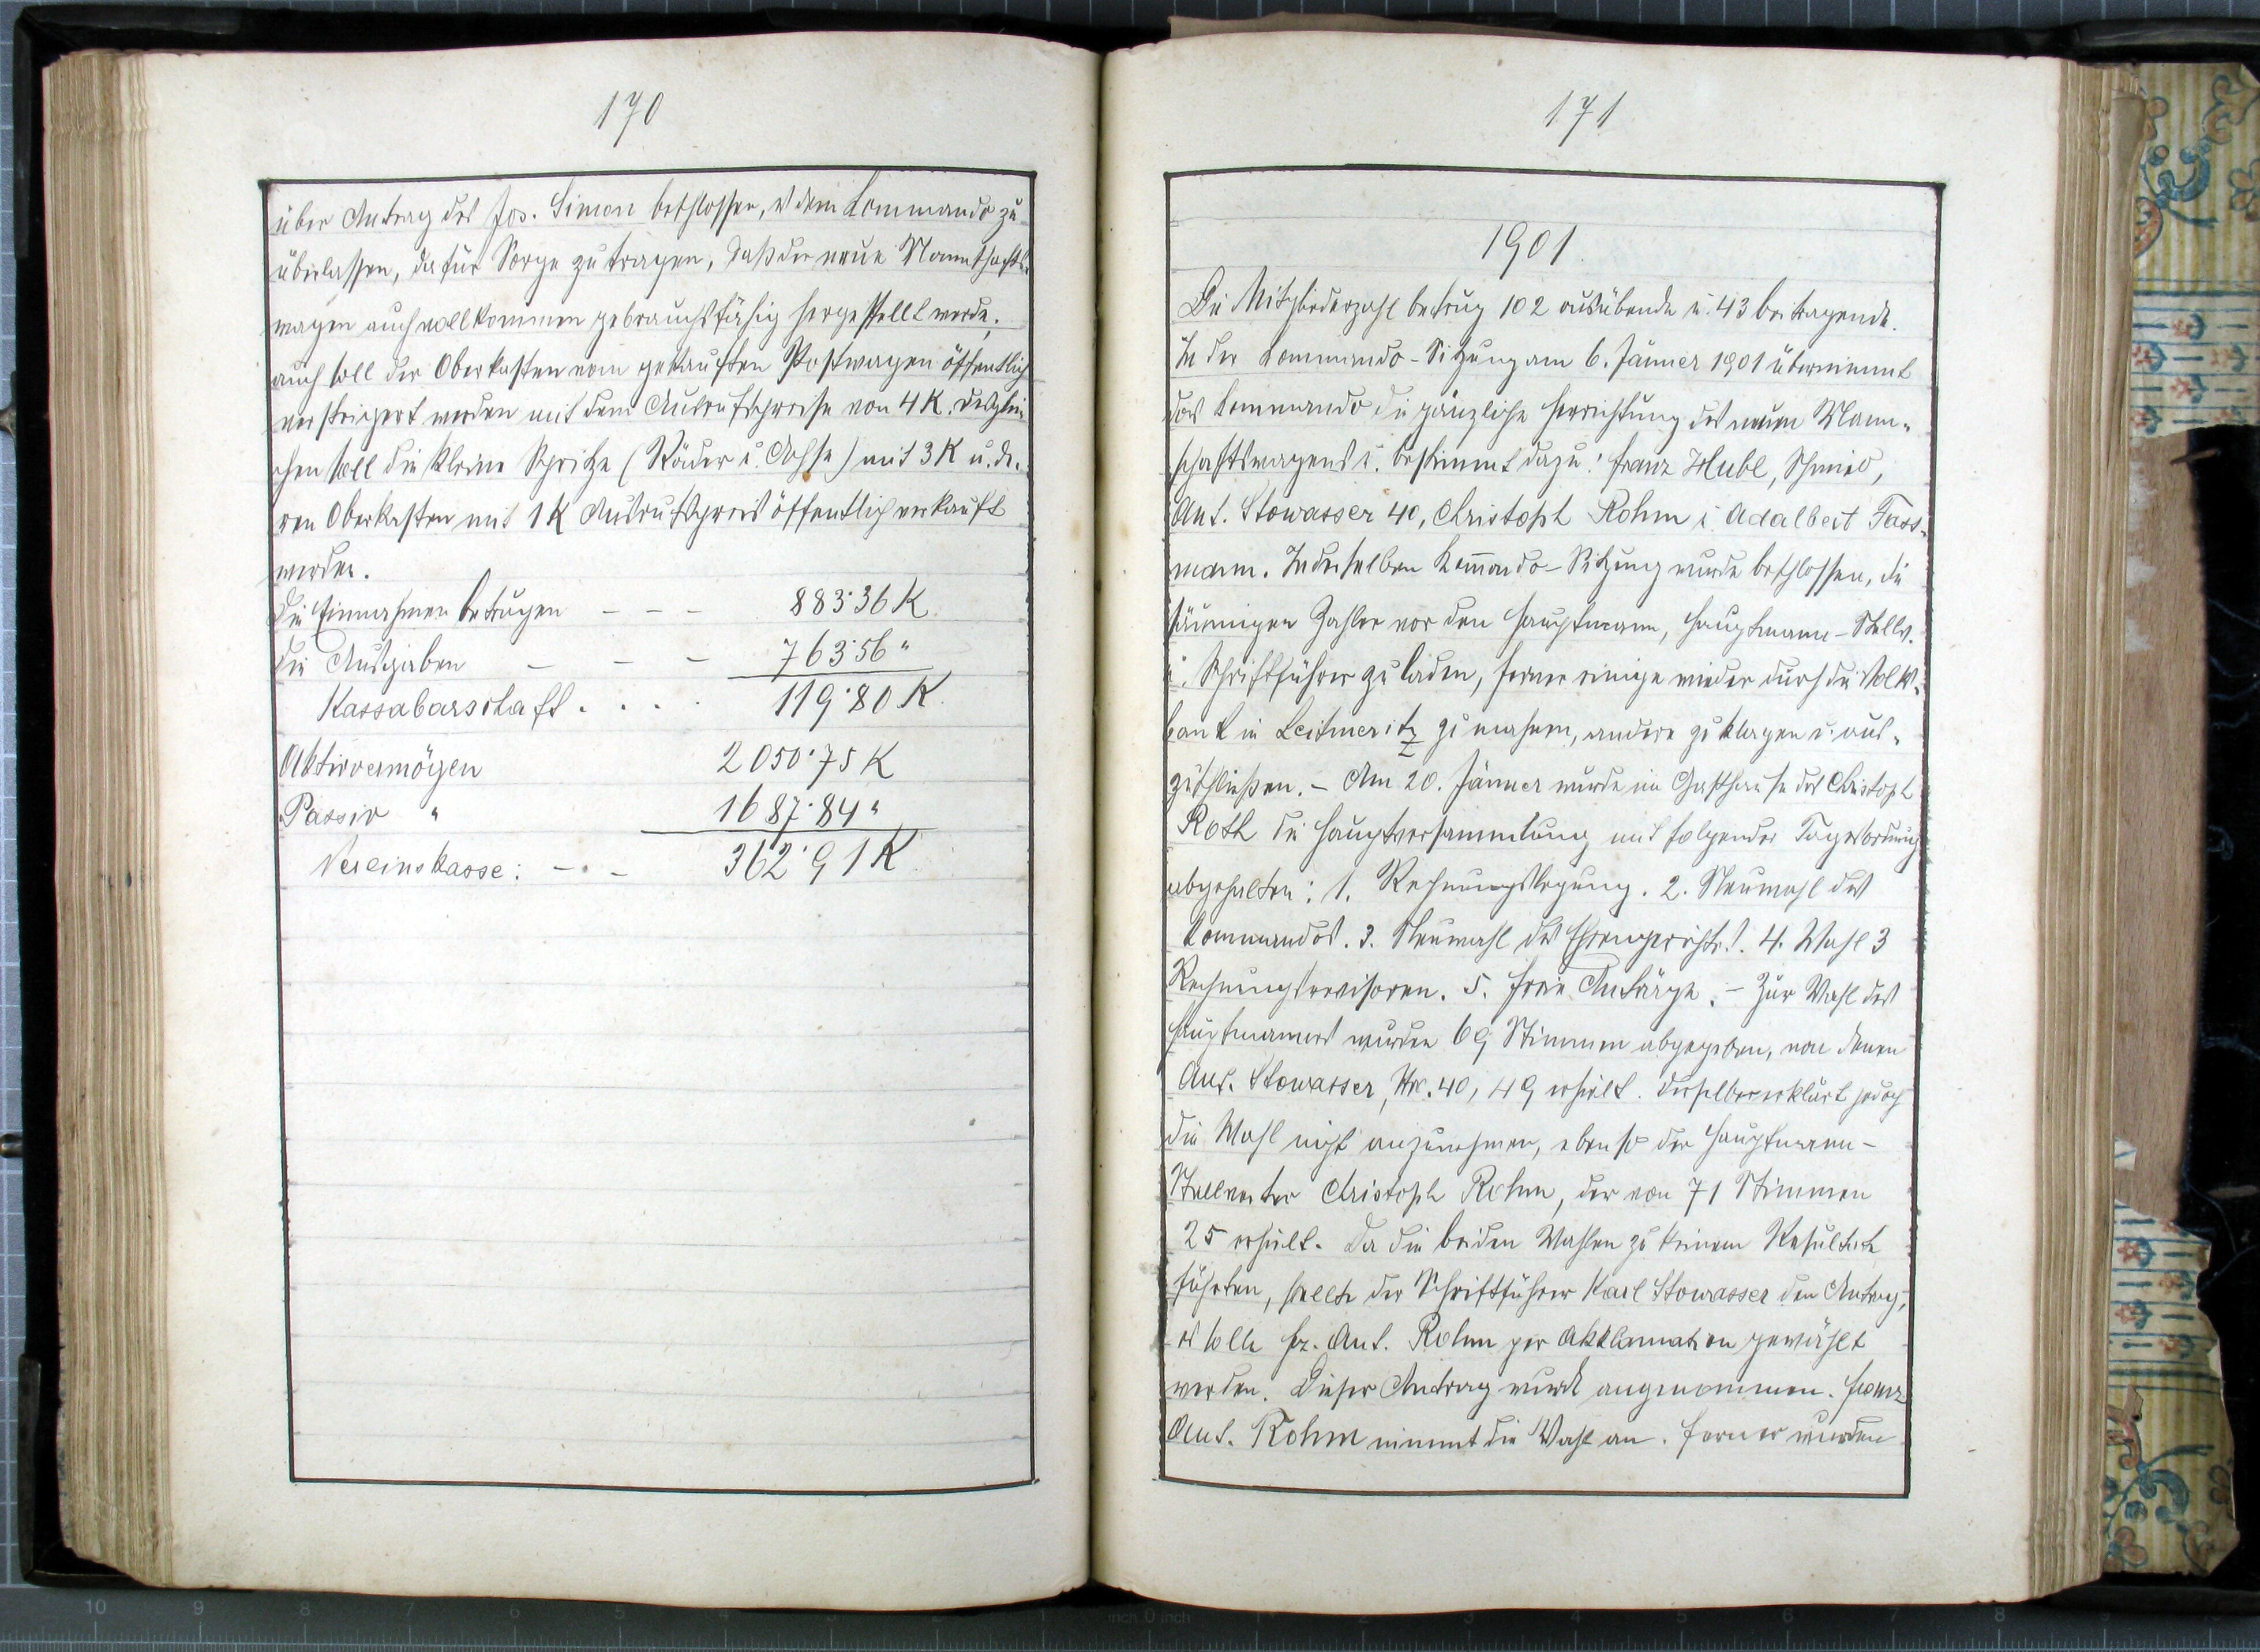 170
über Antrag des Jos. Simon beschlossen, es dem Kommando zu
überlassen, dafür Sorge zu tragen, daß der neue Mannschafts-
wagen auch vollkommen gebrauchsfähig hergestellt werde;
auch soll der Oberkasten vom gekauften Postwagen öffentlich
versteigert werden mit dem Ausrufspreise von 4 K. Desglei-
chen soll die kleine Spritze (Räder u. Achse) mit 3 K u. de-
ren Oberkasten mit 1 K Ausrufspreis öffentlich verkauft
werden.
Die Einnahmen betrugen - - - 883·36 K.
die Ausgaben - - - 763·56 "
Kassabarschaft . . . . 119·80 K.
Aktivvermögen 2050·75 K
Passiv " 1687·84 "
Vereinskasse: - . - 362·91 K.
171
1901.
Die Mitgliederzahl betrug 102 ausübende u. 43 beitragende.
In der Kommando-Sitzung am 6. Jänner 1901 übernimmt
das Kommando die gänzliche Herrichtung des neuen Mann-
schaftswagens u. bestimmt dazu: Franz Hubl, Schmied,
Ant. Stowasser 40, Christoph Rohm u. Adalbert Tass-
mann. In derselben Kom̄ando-Sitzung wurde beschlossen, die
säumigen Zahler vor den Hauptmann, Hauptmann-Stellv.
u. Schriftführer zu laden, ferner einige wieder durch die Volks-
bank in Leitmeritz zu mahnen, andere zu klagen u. aus-
zuschließen. - Am 20. Jänner wurde im Gasthause des Christoph
Roth die Hauptversammlung mit folgender Tagesordnung
abgehalten: 1. Rechnungslegung. 2. Neuwahl des
Kommandos. 3. Neuwahl des Ehrengerichts. 4. Wahl 3
Rechnungsrevisoren. 5. Freie Anträge. - Zur Wahl des
Hauptmannes wurden 69 Stimmen abgegeben, von denen
Ant. Stowasser, Nr. 40, 49 erhielt. Derselbe erklärt jedoch
die Wahl nicht anzunehmen, ebenso der Hauptmann-
Stellverter Christoph Rohm, der von 71 Stimmen
25 erhielt. Da die beiden Wahlen zu keinem Resultate
führten, stellte der Schriftführer Karl Stowasser den Antrag,
es solle Fz. Ant. Rohm per Akklamation gewählt
werden. Dieser Antrag wurde angenommen. Franz
Ant. Rohm nimmt die Wahl an. Ferner wurden